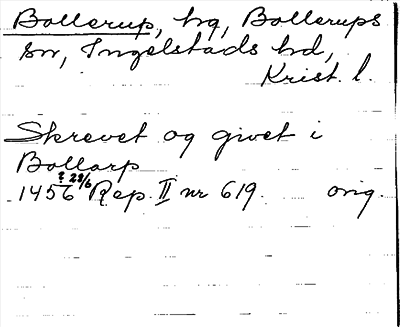 Bollerup, hg, Bollerups
sn, Ingelstads hd,
Krist. l.
Skrevet og givet i
Bollarp
? 29/6
1456 Rep. II nr 619. orig.